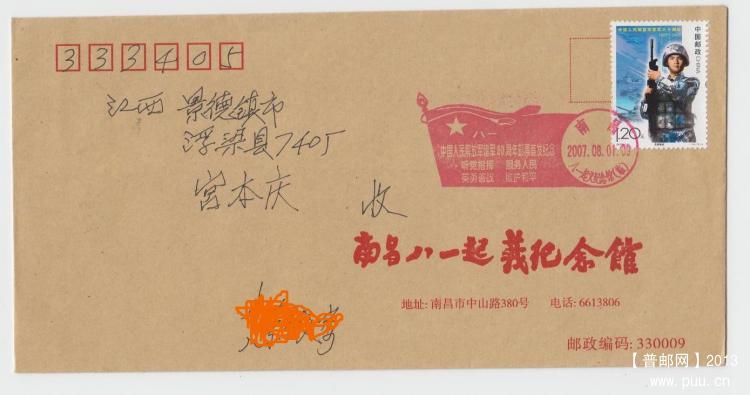 333405
江西 景德镇市
浮梁县7405
宫本庆 收
中国邮政
CHINA
1.20元
八一
中国人民解放军建军80周年邮票首发纪念
听党指挥 服务人民
英勇善战 维护和平
南昌
2007.08.01.09
南昌八一起义纪念馆
地址:南昌市中山路380号 电话:6613806
邮政编码:330009
【普邮网】2013
www.puu.cn